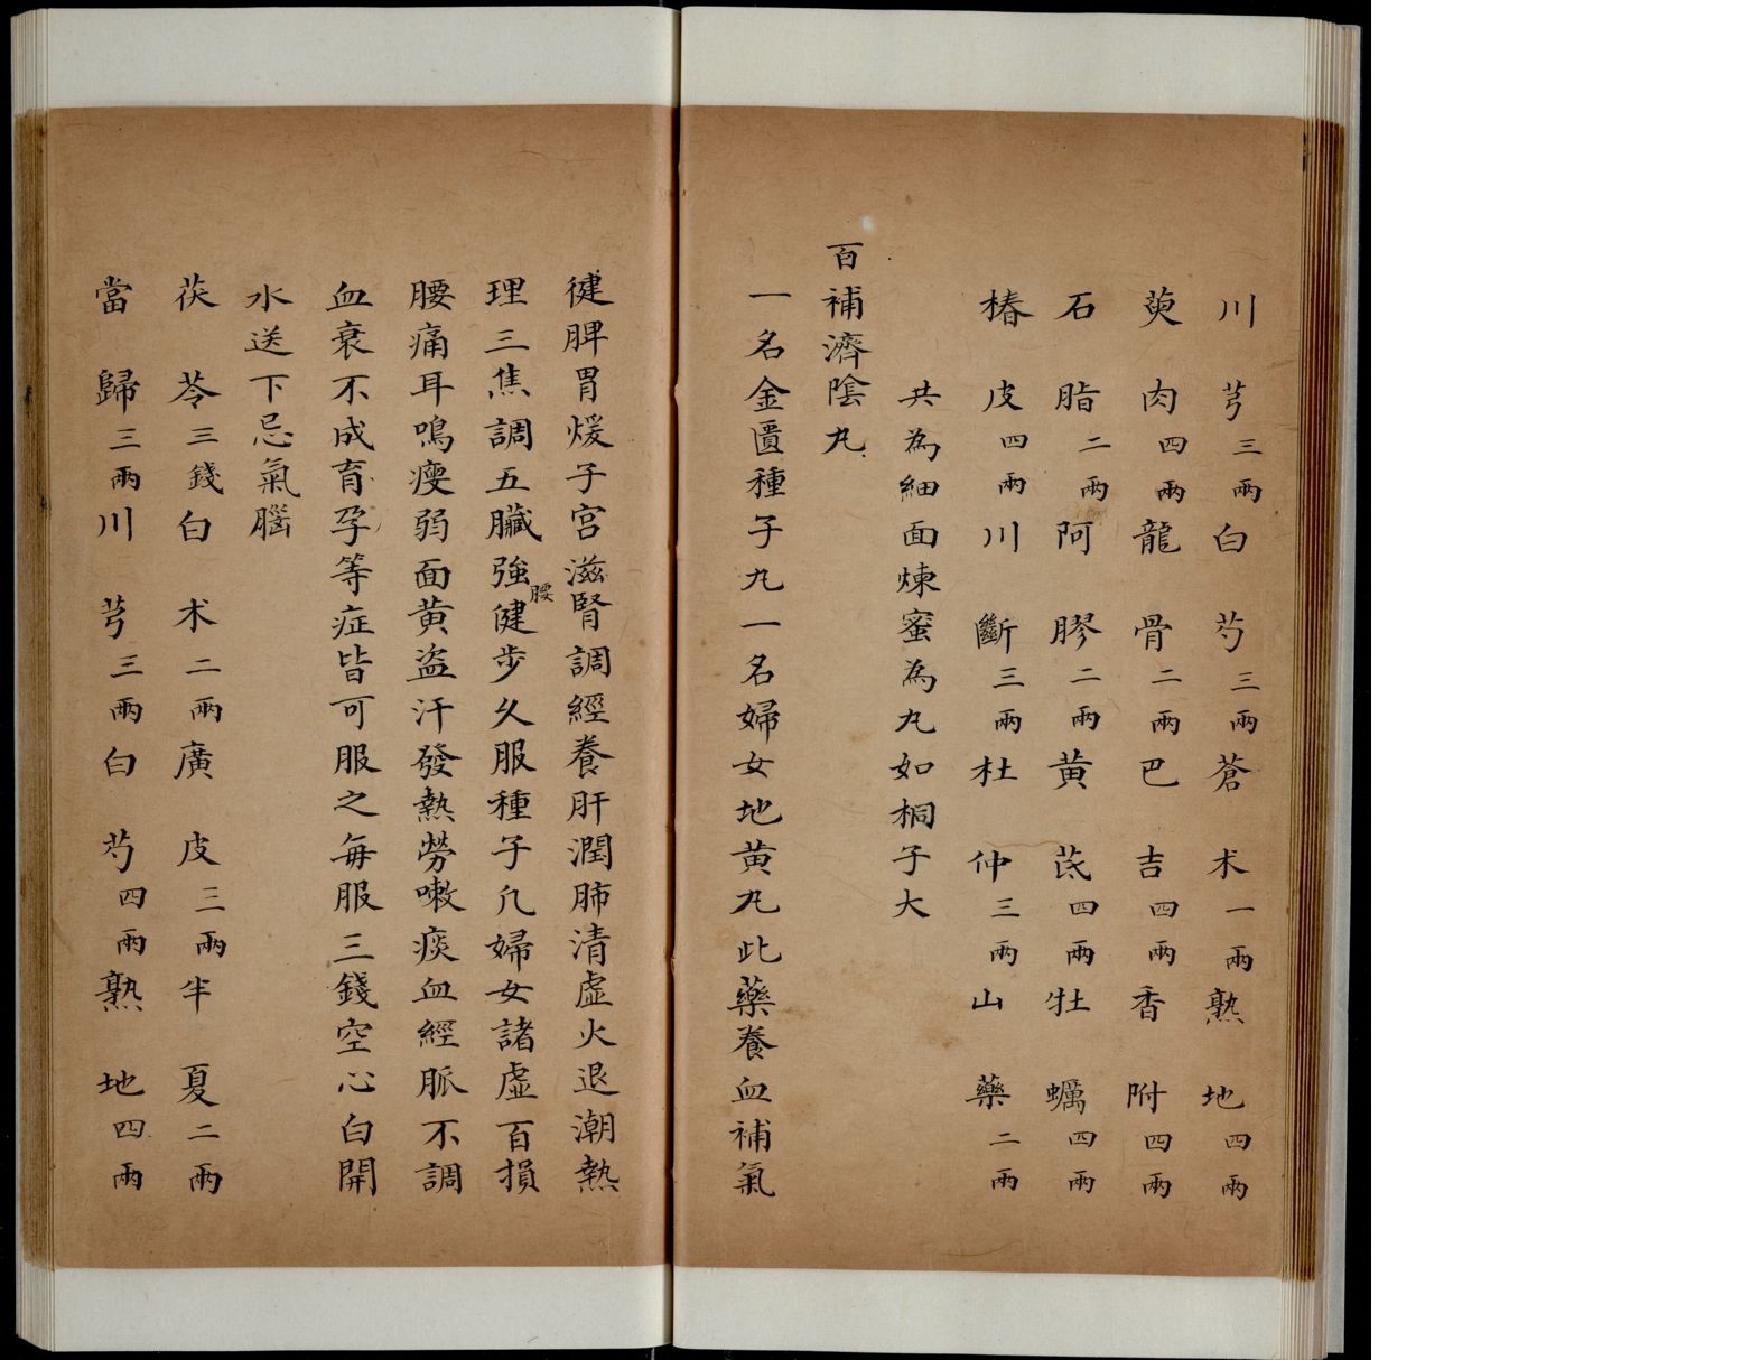 川芎三兩白芍三兩蒼术一兩熟地四兩
萸肉四兩龍骨二兩巴吉四兩香附四兩
石脂二兩阿膠二兩黄茋四兩牡蠣四兩
椿皮四兩川斷三兩杜仲三兩山藥二兩
共為細面煉蜜為丸如桐子大
百補濟陰丸
一名金匱種子丸一名婦女地黄丸此藥養血補氣
健脾胃煖子宮滋腎調經養肝潤肺清虛火退潮熱
理三焦調五臟強腰健步久服種子凡婦女諸虛百損
腰痛耳鳴瘦弱面黄盗汗發熱勞嗽痰血經脈不調
血衰不成育孕等症皆可服之每服三錢空心白開
水送下忌氣腦
茯苓三錢白术二兩廣皮三兩半夏二兩
當歸三兩川芎三兩白芍四兩熟地四兩